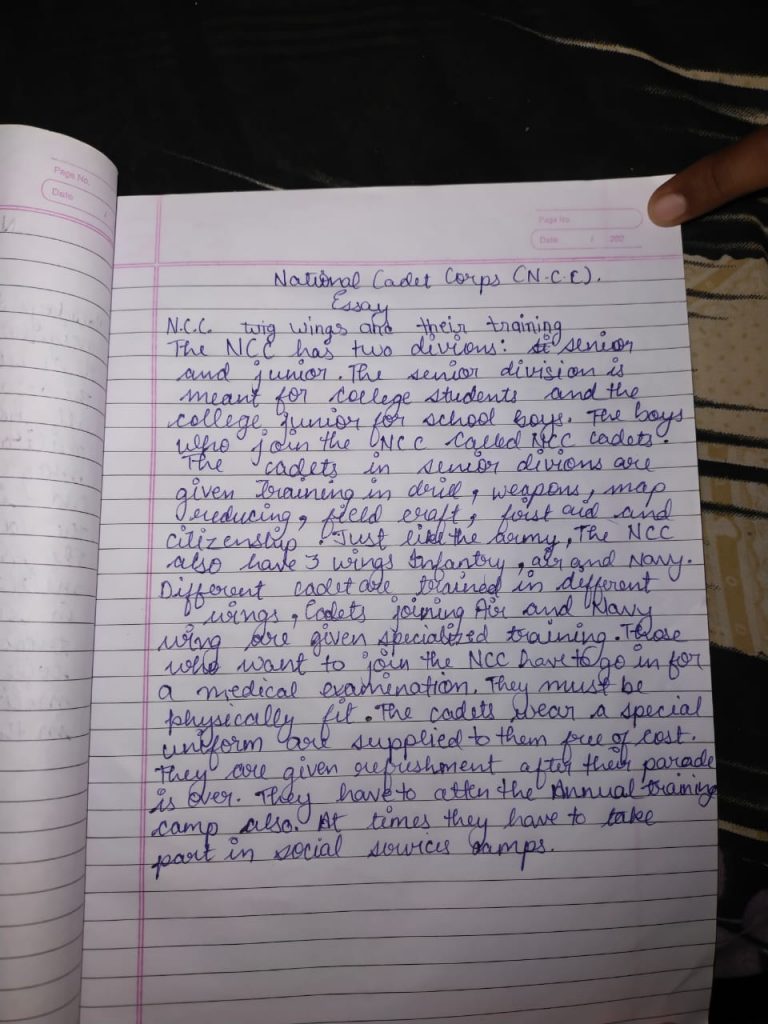 Page No.
Date
Page No.
Date 202
National Cadet Corps (N.C.C).
Essay
N.C.C. twig wings and their training
The NCC has two divions: si senior
and junior. The senior division is
meant for college students and the
college junior for school boys. The boys
who join the NCC called NCC cadets.
The cadets in senior divions are
given Training in drill, weapons, map
reducing, field craft, first aid and
citizenship. Just like the army, The NCC
also have 3 wings Infantry, air and Navy.
Different cadet are trained in different
wings, Cadets joining Air and Navy
wing are given specialized training. Those
who want to join the NCC have to go in for
a medical examination. They must be
physically fit. The cadets wear a special
uniform are supplied to them free of cost.
They are given refrishment after their parade
is over. They have to atten the Annual training
camp also. At times they have to take
part in social services camps.